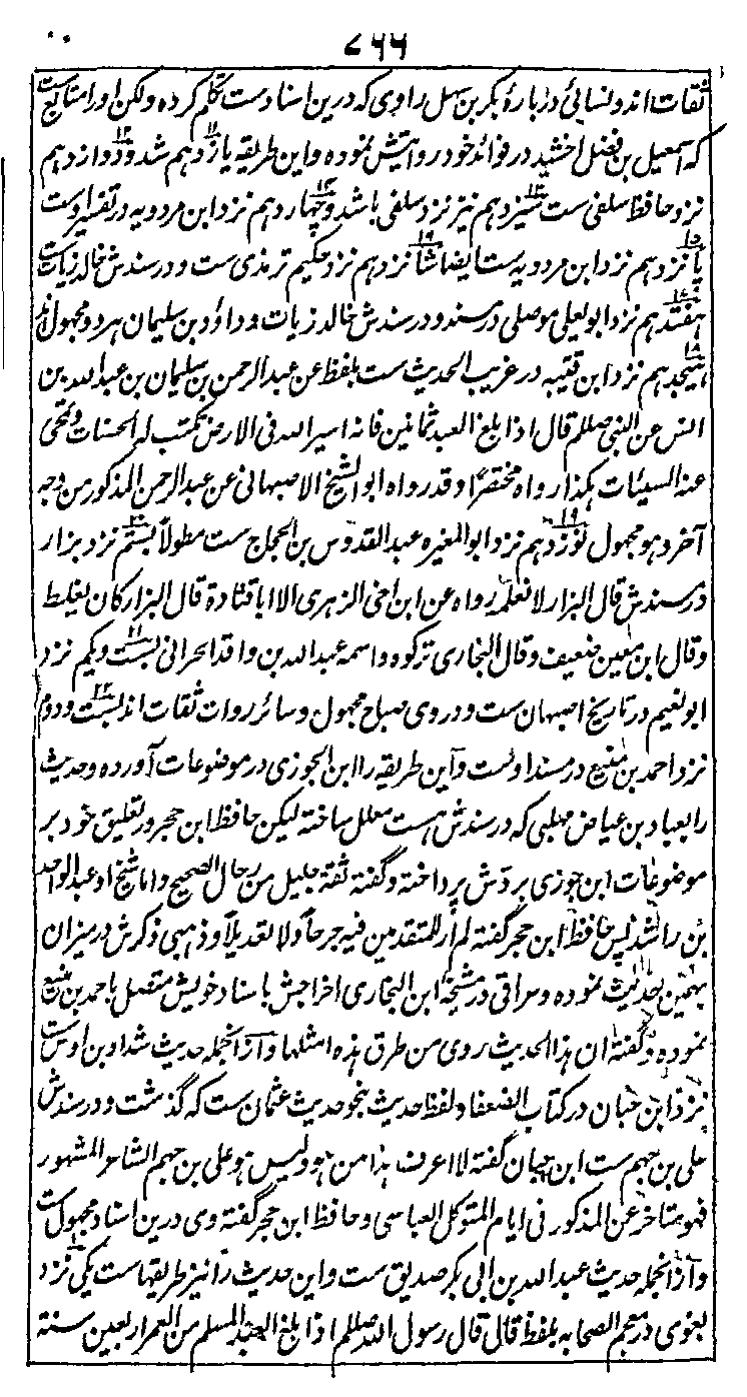 ۷۶۶
ثقات اند و نسائی دربارهٔ بکر بن سهل راوی که درین اسنادست تکلم کرده ولکن او را متابع ست
که اسمعیل بن فضل اخشید در فوائد خود روایتش نموده و این طریقه یازدهم شد و دوازدهم
نزد حافظ سلفی ست سیزدهم نیز نزد سلفی باشد و چهاردهم نزد ابن مردویه در تفسیر اوست
پانزدهم نزد ابن مردویه ست ایضا شانزدهم نزد حکیم ترمذی ست و در سندش خالد زیات ست
هفتدهم نزد ابو یعلی موصلی در مسند و در سندش خالد زیات و داؤد بن سلیمان هر دو مجهول اند
هیجدهم نزد ابن قتیبه در غریب الحدیث ست بلفظ عن عبد الرحمن بن سلیمان بن عبد الله بن
انس عن النبی صللم قال اذا بلغ العبد ثمانین فانه اسیر الله فی الارض تکتب له الحسنات و تمحی
عنه السیئات هکذا رواه مختصرا و قد رواه ابو الشیخ الاصبهانی عن عبد الرحمن المذکور من وجه
آخر و هو مجهول نوزدهم نزد ابو المغیره عبد القدوس بن الحجاج ست مطولا بستم نزد بزار
در سندش قال البزار لا نعلم رواه عن ابن اخی الزهری الا ابا قتادة قال البزار کان یغلط
وقال ابن معین ضعیف وقال البخاری ترکوه و اسمه عبد الله بن واقد الحرانی بست و یکم نزد
ابو نعیم در تاریخ اصبهان ست و در وی صباح مجهول و سائر روات ثقات اند بست و دوم
نزد احمد بن منیع در مسند اوست و این طریقه را ابن الجوزی در موضوعات آورده و حدیث
را بعباد بن عیاض مهلبی که در سندش هست معلل ساخته لیکن حافظ ابن حجر در تعلیق خود بر
موضوعات ابن جوزی بردش پرداخته و گفته ثقة جلیل من رجال الصحیح و اما شیخ او عبد الواحد
بن راشد پس حافظ ابن حجر گفته لم ار للمتقدمین فیه جرحا ولا تعدیلا و ذهبی ذکرش در میزان
بهمین حدیث نموده و عراقی در مشیخه ابن البخاری اخراجش باسناد خویش متصل باحمد بن منیع
نموده و گفته ان هذا الحدیث روی من طرق هذه امثلها و ازانجمله حدیث شداد بن اوس ست
نزد ابن حبان در کتاب الضعفا و لفظ حدیث بنحو حدیث عثمان ست که گذشت و در سندش
علی بن جهم ست ابن حبان گفته لا اعرف هذا من هو و لیس هو علی بن جهم الشاعر المشهور
فهو متاخر عن المذکور فی ایام المتوکل العباسی و حافظ ابن حجر گفته وی درین اسناد مجهول ست
و ازانجمله حدیث عبد الله بن ابی بکر صدیق ست و این حدیث را نیز طریقهاست یکی نزد
بغوی در معجم الصحابه بلفظ قال قال رسول الله صللم اذا بلغ العبد المسلم من العمر اربعین سنة